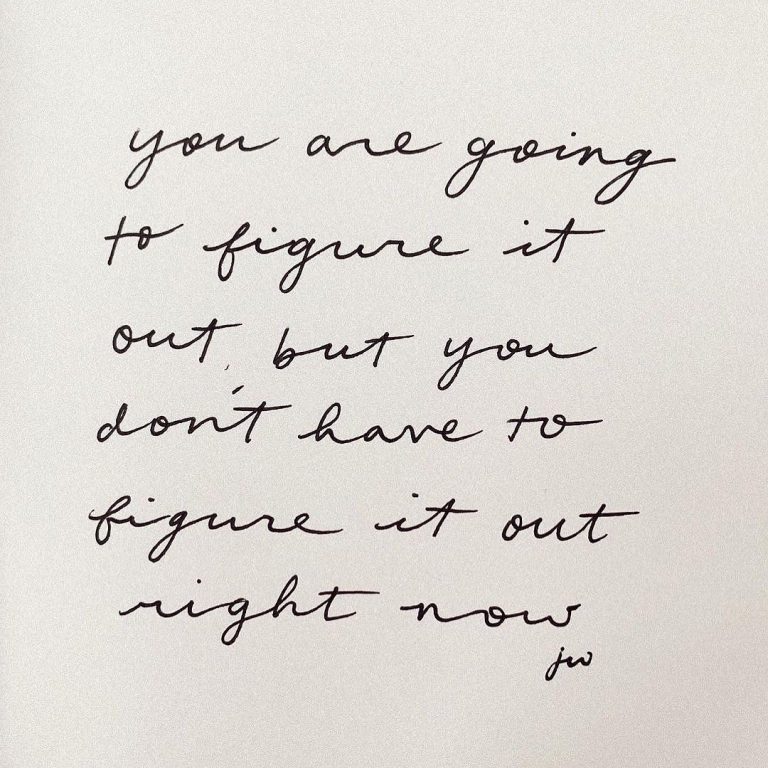 you are going
to figure it
out, but you
don't have to
figure it out
right now
jw